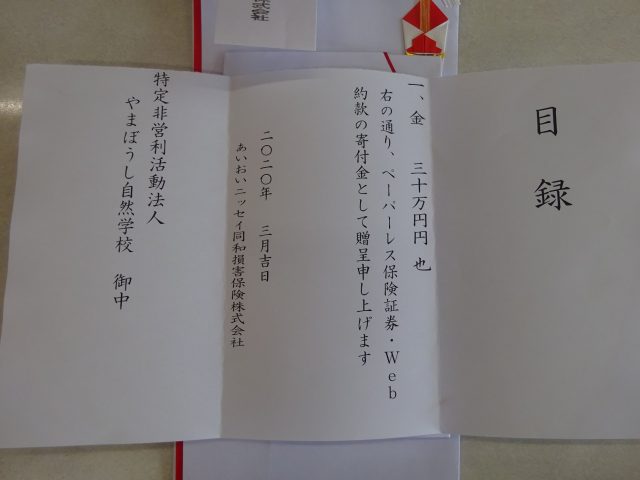 目録
一、金 三十万円円 也
右の通り、ペーパーレス保険証券・Web
約款の寄付金として贈呈申し上げます
二〇二〇年 三月吉日
あいおいニッセイ同和損害保険株式会社
特定非営利活動法人
やまぼうし自然学校 御中
式会社